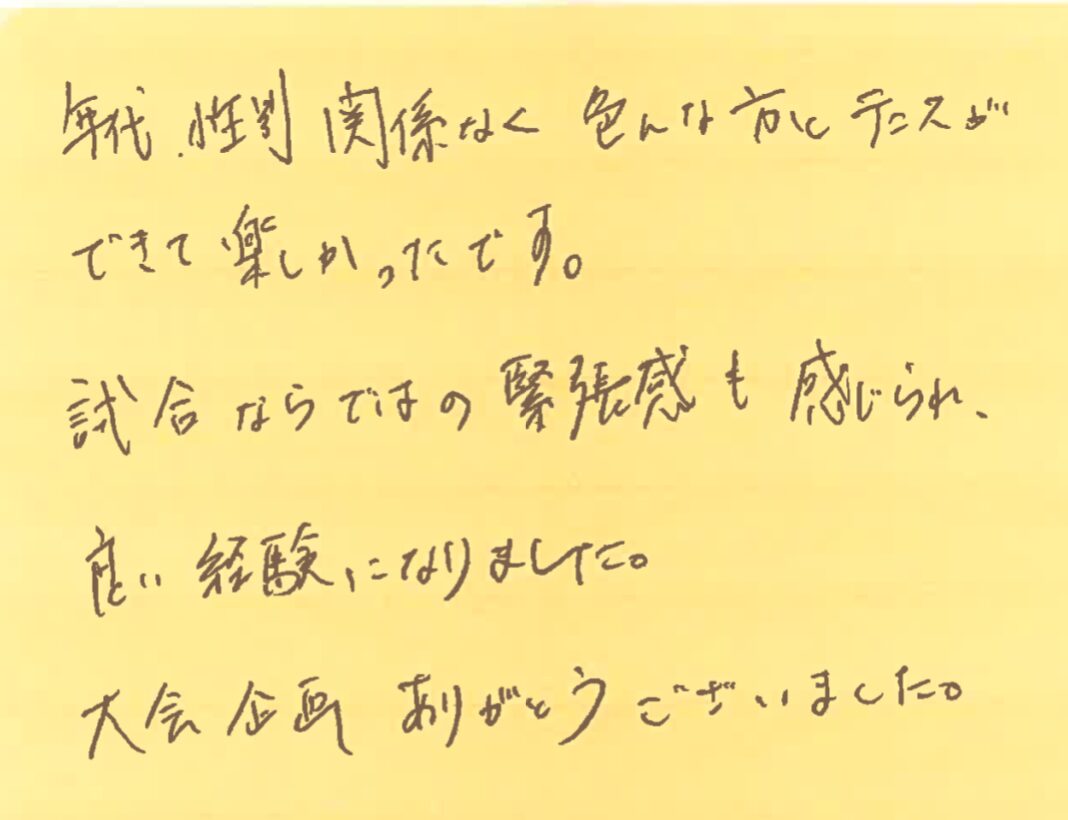 年代、性別 関係なく 色んな方とテニスが
できて楽しかったです。
試合ならではの緊張感も感じられ、
良い経験になりました。
大会企画 ありがとうございました。